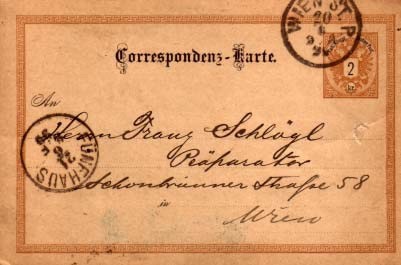 WIEN ST. P.
20
6
Correspondenz-Karte.
2
kr.
An
Herrn Franz Schlögl
Präparator
Schönbrunner Straße 58
in
Wien
FÜNFHAUS